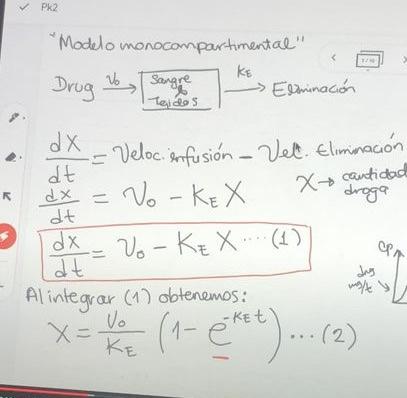 Pk2
"Modelo monocompartimental"
Drug V₀ → Sangre & Tejidos K_E → Eliminación
dX/dt = Veloc. infusión - Vel. Eliminación
dx/dt = V₀ - K_E X   X → cantidad droga
dx/dt = V₀ - K_E X ... (1)
Cp
Al integrar (1) obtenemos:
X = V₀/K_E (1 - e^(-K_E t)) ... (2)